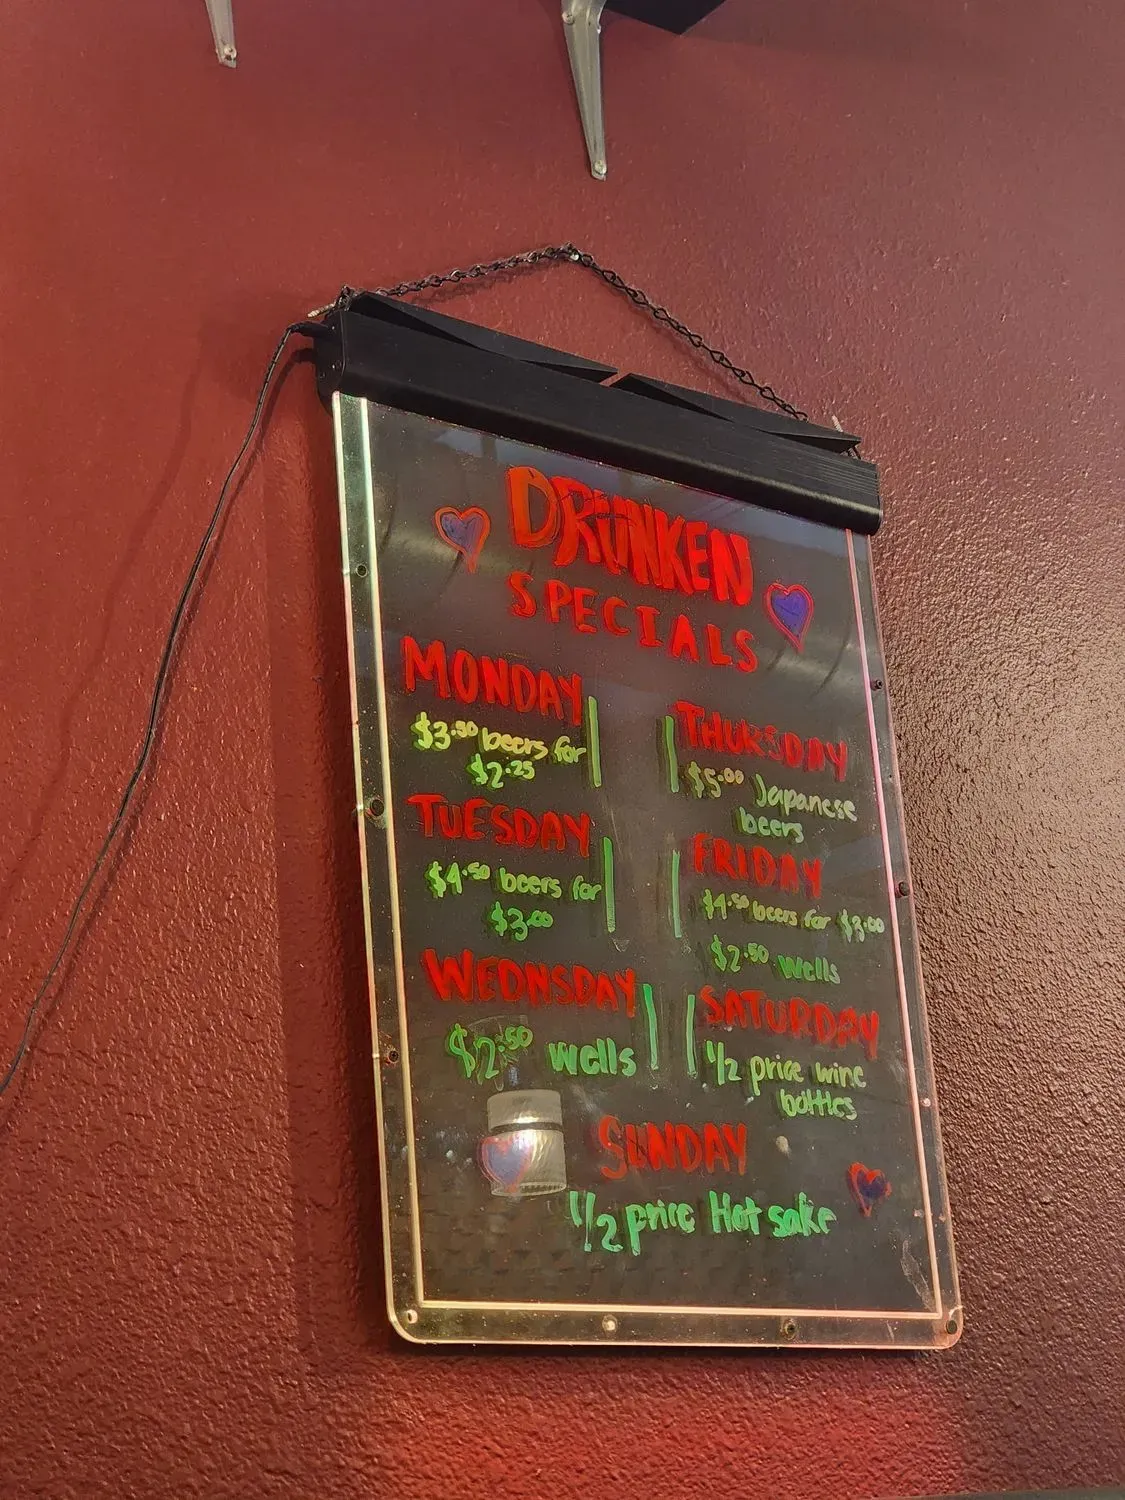 DRUNKEN
SPECIALS
MONDAY
$3.50 beers for
$2.25
TUESDAY
$4.50 beers for
$3.00
WEDNSDAY
$2.50 wells
THURSDAY
$5.00 Japanese
beers
FRIDAY
$4.50 beers for $3.00
$2.50 wells
SATURDAY
1/2 price wine
bottles
SUNDAY
1/2 price Hot sake